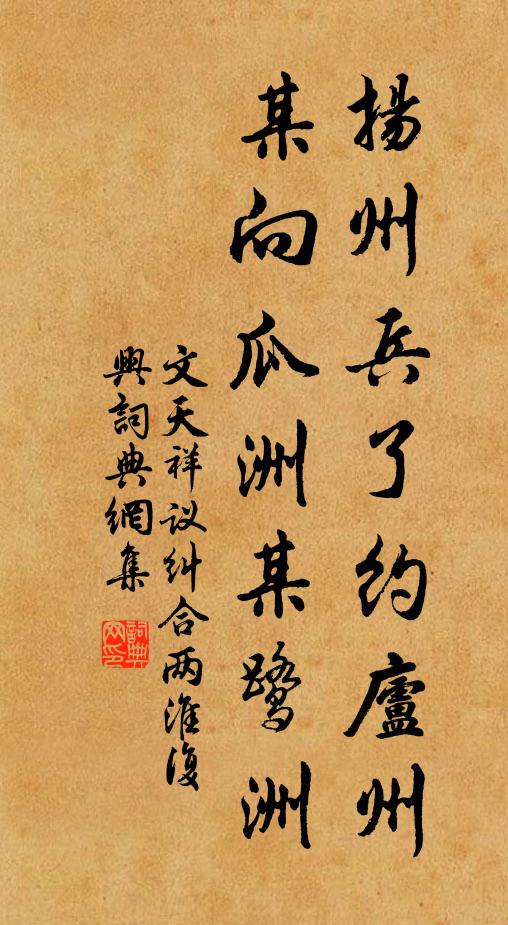 揚州兵了約廬州
某向瓜洲某鷺洲
文天祥议纠合两淮復
興詞典網集
詞典
网印